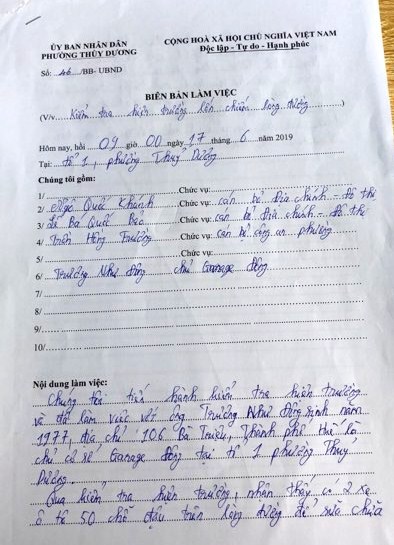 ỦY BAN NHÂN DÂN
PHƯỜNG THỦY DƯƠNG
CỘNG HOÀ XÃ HỘI CHỦ NGHĨA VIỆT NAM
Độc lập - Tự do - Hạnh phúc
Số: 46 /BB- UBND
BIÊN BẢN LÀM VIỆC
(V/v Kiểm tra hiện trường lấn chiếm lòng đường)
Hôm nay, hồi 09 giờ 00 ngày 17 tháng 6 năm 2019
Tại: tổ 1, phường Thuỷ Dương
Chúng tôi gồm:
1/ Chức vụ:
2/ Ngô Quốc Khánh Chức vụ: cán bộ địa chính - đô thị
3/ Lê Bá Quốc Bảo Chức vụ: cán bộ địa chính - đô thị
4/ Trần Hồng Trường Chức vụ: cán bộ công an phường
5/ Chức vụ:
6/ Trương Như Đông chủ Garage Đông
7/
8/
9/
10/
Nội dung làm việc:
Chúng tôi tiến hành kiểm tra hiện trường
và đã làm việc với ông Trương Như Đông sinh năm
1977, địa chỉ 106 Bà Triệu, Thành phố Huế là
chủ cơ sở Garage Đông tại tổ 1 phường Thuỷ
Dương.
Qua kiểm tra hiện trường, nhận thấy có 2 xe
ô tô 50 chỗ đậu trên lòng đường để sửa chữa